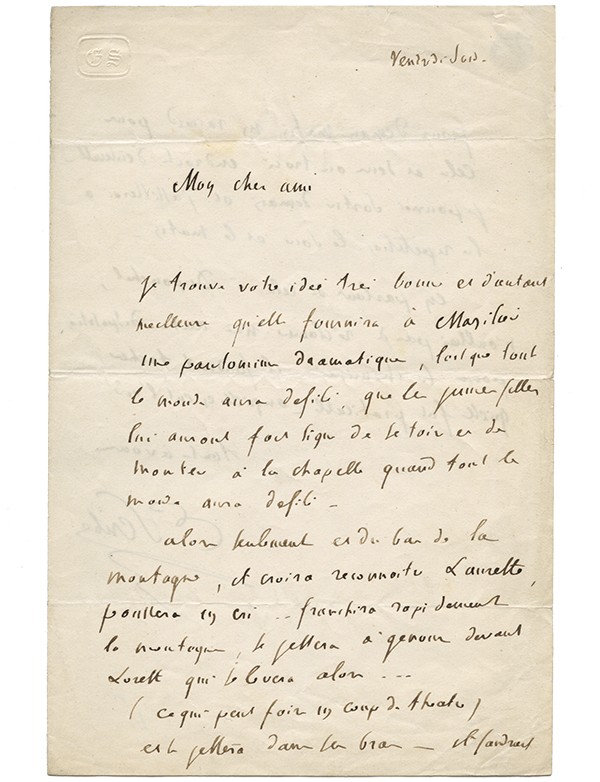 ES
Vendredi soir.
Mon cher ami
je trouve votre idée très bonne et d'autant
meilleure qu'elle fournira à
une pantomime dramatique, lorsque tout
le monde aura defilé, que les jeunes filles
lui auront fait signe de se taire et de
monter à la chapelle quand tout le
monde aura defilé -
alors seulement et du bas de la
montagne, il croira reconnaitre Laurette,
poussera un cri .. franchira rapidement
la montagne, se jettera à genoux devant
Lorette qui se levera alors ...
(ce qui peut faire un coup de theatre)
et se jettera dans ses bras - il faudrait